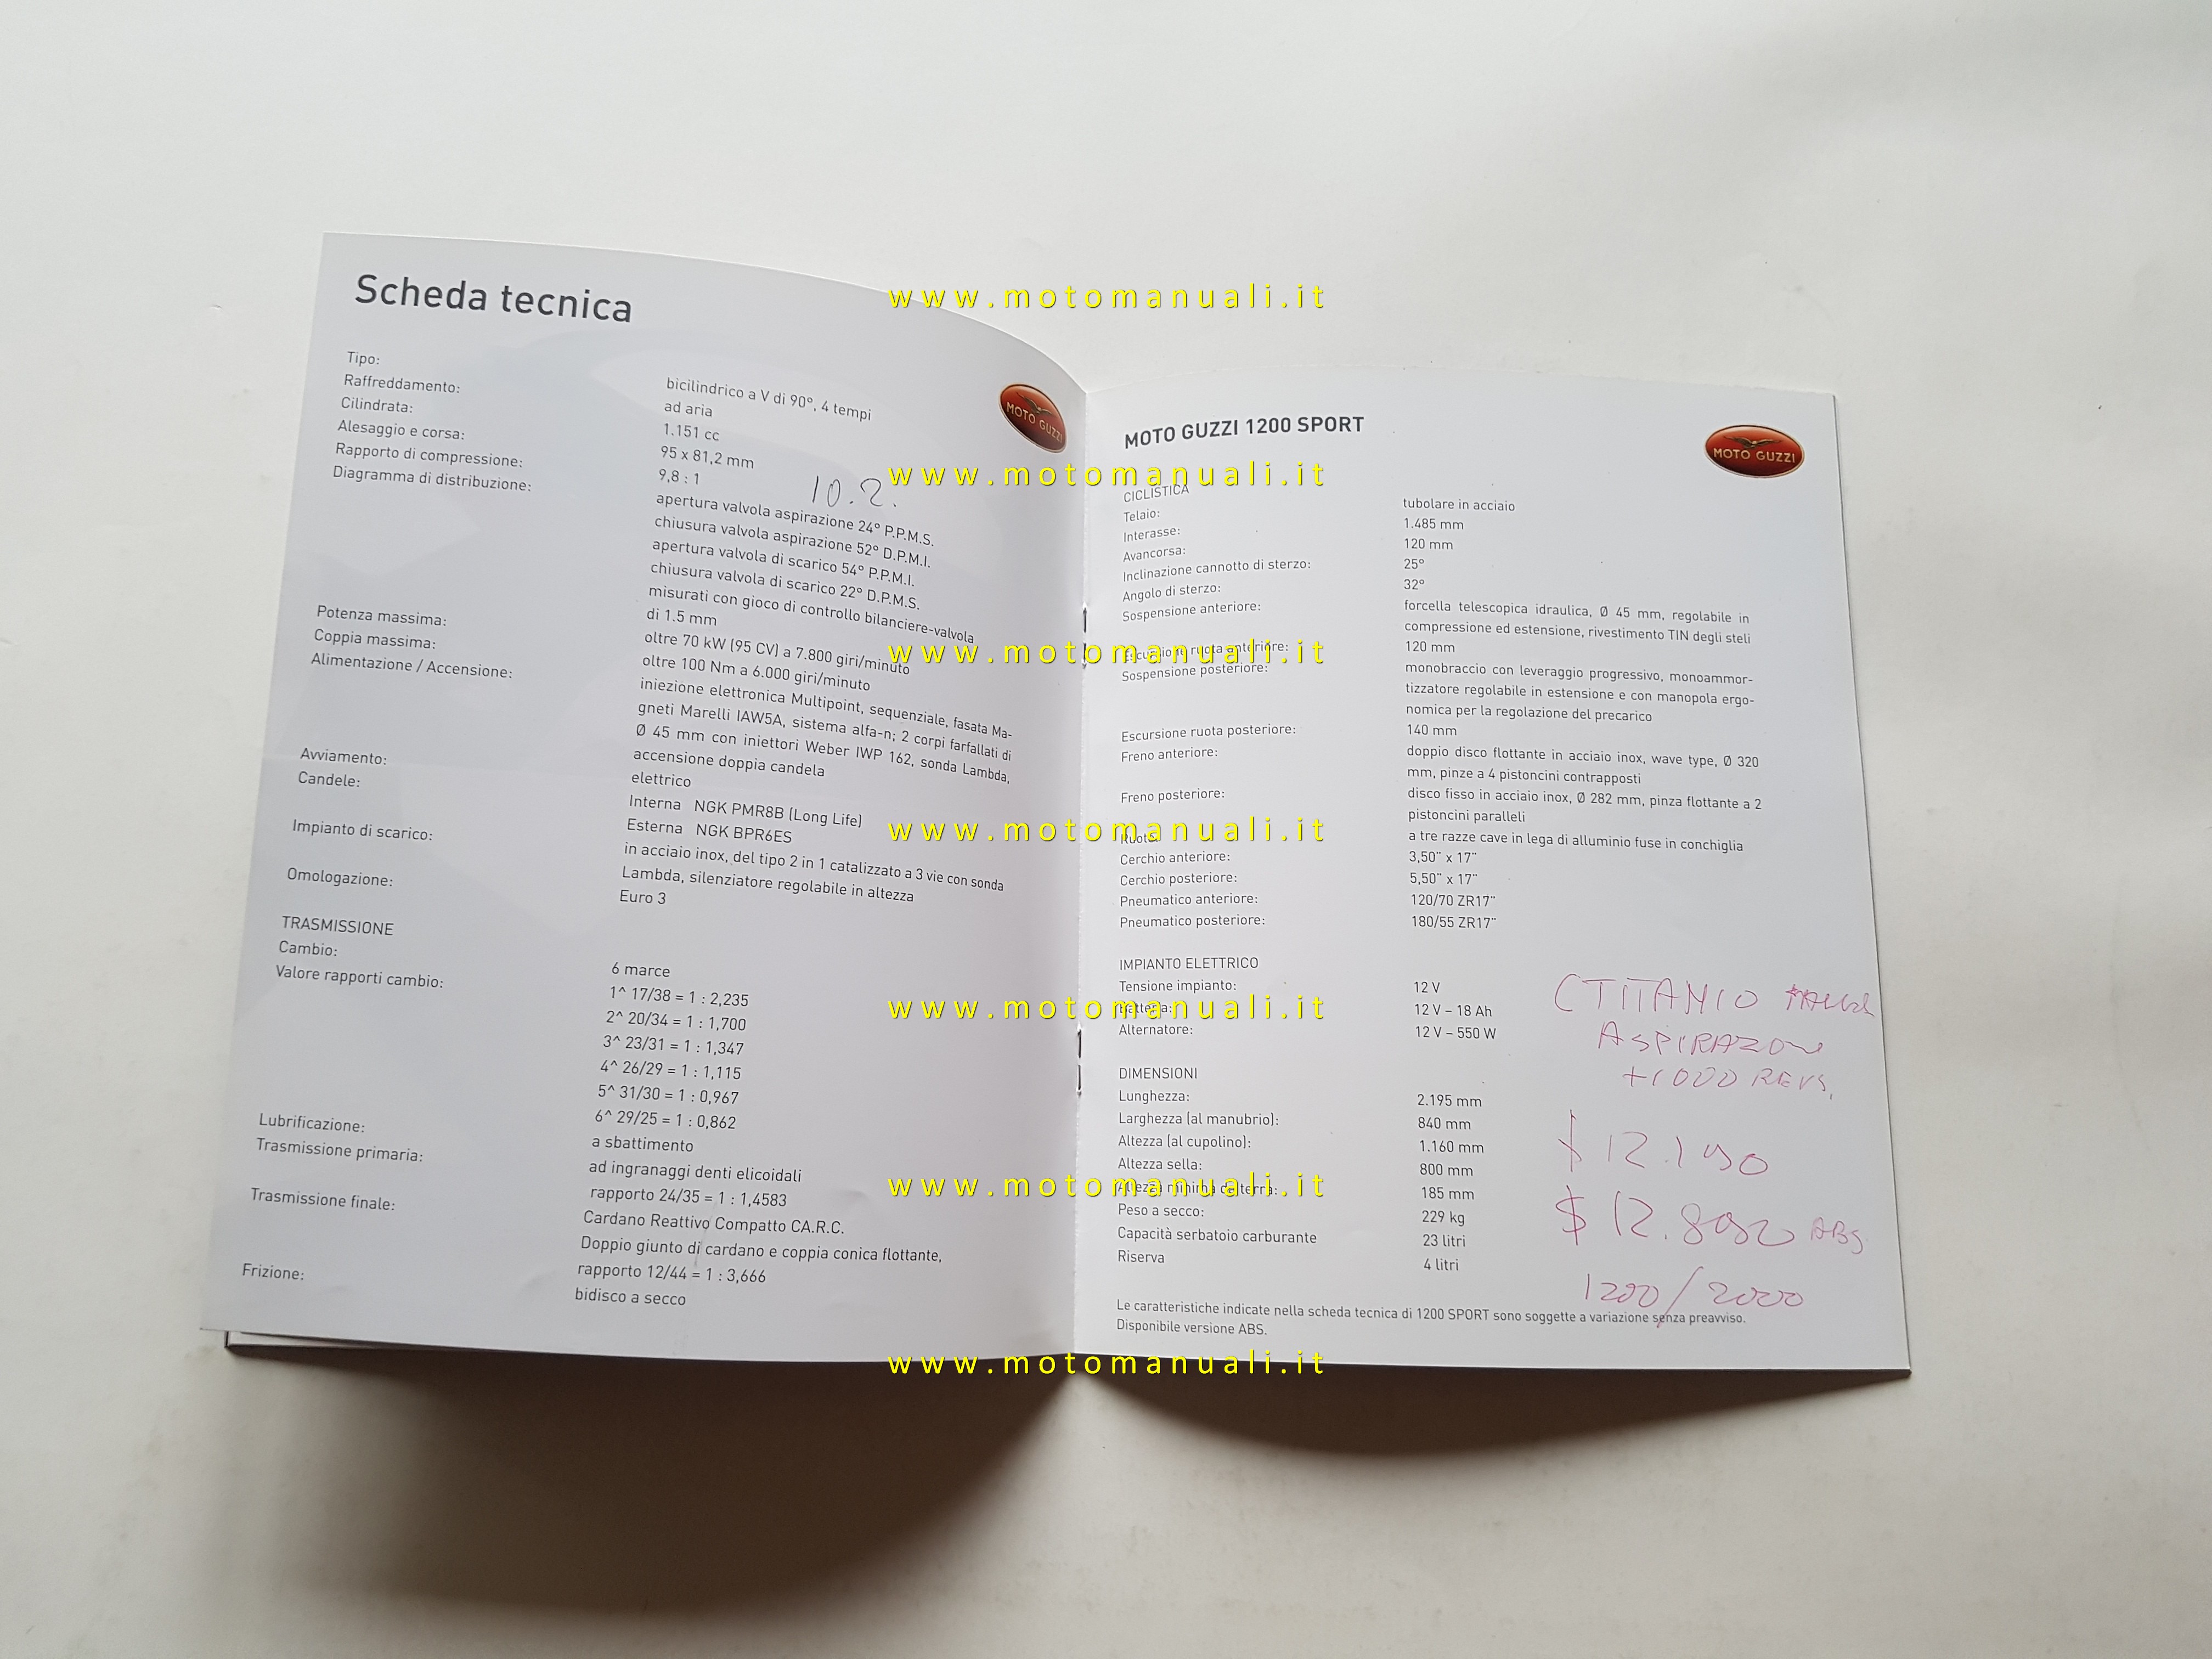 Scheda tecnica
MOTO GUZZI
Tipo: bicilindrico a V di 90°, 4 tempi
Raffreddamento: ad aria
Cilindrata: 1.151 cc
Alesaggio e corsa: 95 x 81,2 mm
Rapporto di compressione: 9,8 : 1 10.2.
Diagramma di distribuzione: apertura valvola aspirazione 24° P.P.M.S.
chiusura valvola aspirazione 52° D.P.M.I.
apertura valvola di scarico 54° P.P.M.I.
chiusura valvola di scarico 22° D.P.M.S.
misurati con gioco di controllo bilanciere-valvola
di 1.5 mm
Potenza massima: oltre 70 kW (95 CV) a 7.800 giri/minuto
Coppia massima: oltre 100 Nm a 6.000 giri/minuto
Alimentazione / Accensione: iniezione elettronica Multipoint, sequenziale, fasata Ma-
gneti Marelli IAW5A, sistema alfa-n; 2 corpi farfallati di
Ø 45 mm con iniettori Weber IWP 162, sonda Lambda,
accensione doppia candela
Avviamento: elettrico
Candele: Interna NGK PMR8B (Long Life)
Esterna NGK BPR6ES
Impianto di scarico: in acciaio inox, del tipo 2 in 1 catalizzato a 3 vie con sonda
Lambda, silenziatore regolabile in altezza
Omologazione: Euro 3
TRASMISSIONE
Cambio: 6 marce
Valore rapporti cambio: 1^ 17/38 = 1 : 2,235
2^ 20/34 = 1 : 1,700
3^ 23/31 = 1 : 1,347
4^ 26/29 = 1 : 1,115
5^ 31/30 = 1 : 0,967
6^ 29/25 = 1 : 0,862
Lubrificazione: a sbattimento
Trasmissione primaria: ad ingranaggi denti elicoidali
rapporto 24/35 = 1 : 1,4583
Trasmissione finale: Cardano Reattivo Compatto CA.R.C.
Doppio giunto di cardano e coppia conica flottante,
rapporto 12/44 = 1 : 3,666
Frizione: bidisco a secco
MOTO GUZZI 1200 SPORT
MOTO GUZZI
CICLISTICA
Telaio: tubolare in acciaio
Interasse: 1.485 mm
Avancorsa: 120 mm
Inclinazione cannotto di sterzo: 25°
Angolo di sterzo: 32°
Sospensione anteriore: forcella telescopica idraulica, Ø 45 mm, regolabile in
compressione ed estensione, rivestimento TIN degli steli
Escursione ruota anteriore: 120 mm
Sospensione posteriore: monobraccio con leveraggio progressivo, monoammor-
tizzatore regolabile in estensione e con manopola ergo-
nomica per la regolazione del precarico
Escursione ruota posteriore: 140 mm
Freno anteriore: doppio disco flottante in acciaio inox, wave type, Ø 320
mm, pinze a 4 pistoncini contrapposti
Freno posteriore: disco fisso in acciaio inox, Ø 282 mm, pinza flottante a 2
pistoncini paralleli
Ruote: a tre razze cave in lega di alluminio fuse in conchiglia
Cerchio anteriore: 3,50" x 17"
Cerchio posteriore: 5,50" x 17"
Pneumatico anteriore: 120/70 ZR17"
Pneumatico posteriore: 180/55 ZR17"
IMPIANTO ELETTRICO
Tensione impianto: 12 V
Batteria: 12 V – 18 Ah
Alternatore: 12 V – 550 W
DIMENSIONI
Lunghezza: 2.195 mm
Larghezza (al manubrio): 840 mm
Altezza (al cupolino): 1.160 mm
Altezza sella: 800 mm
Altezza minima da terra: 185 mm
Peso a secco: 229 kg
Capacità serbatoio carburante 23 litri
Riserva 4 litri
Le caratteristiche indicate nella scheda tecnica di 1200 SPORT sono soggette a variazione senza preavviso.
Disponibile versione ABS.
TITANIO
+1000 REVS.
$ 12.190
$ 12.8 ABS
1200/2000
www.motomanuali.it
www.motomanuali.it
www.motomanuali.it
www.motomanuali.it
www.motomanuali.it
www.motomanuali.it
www.motomanuali.it